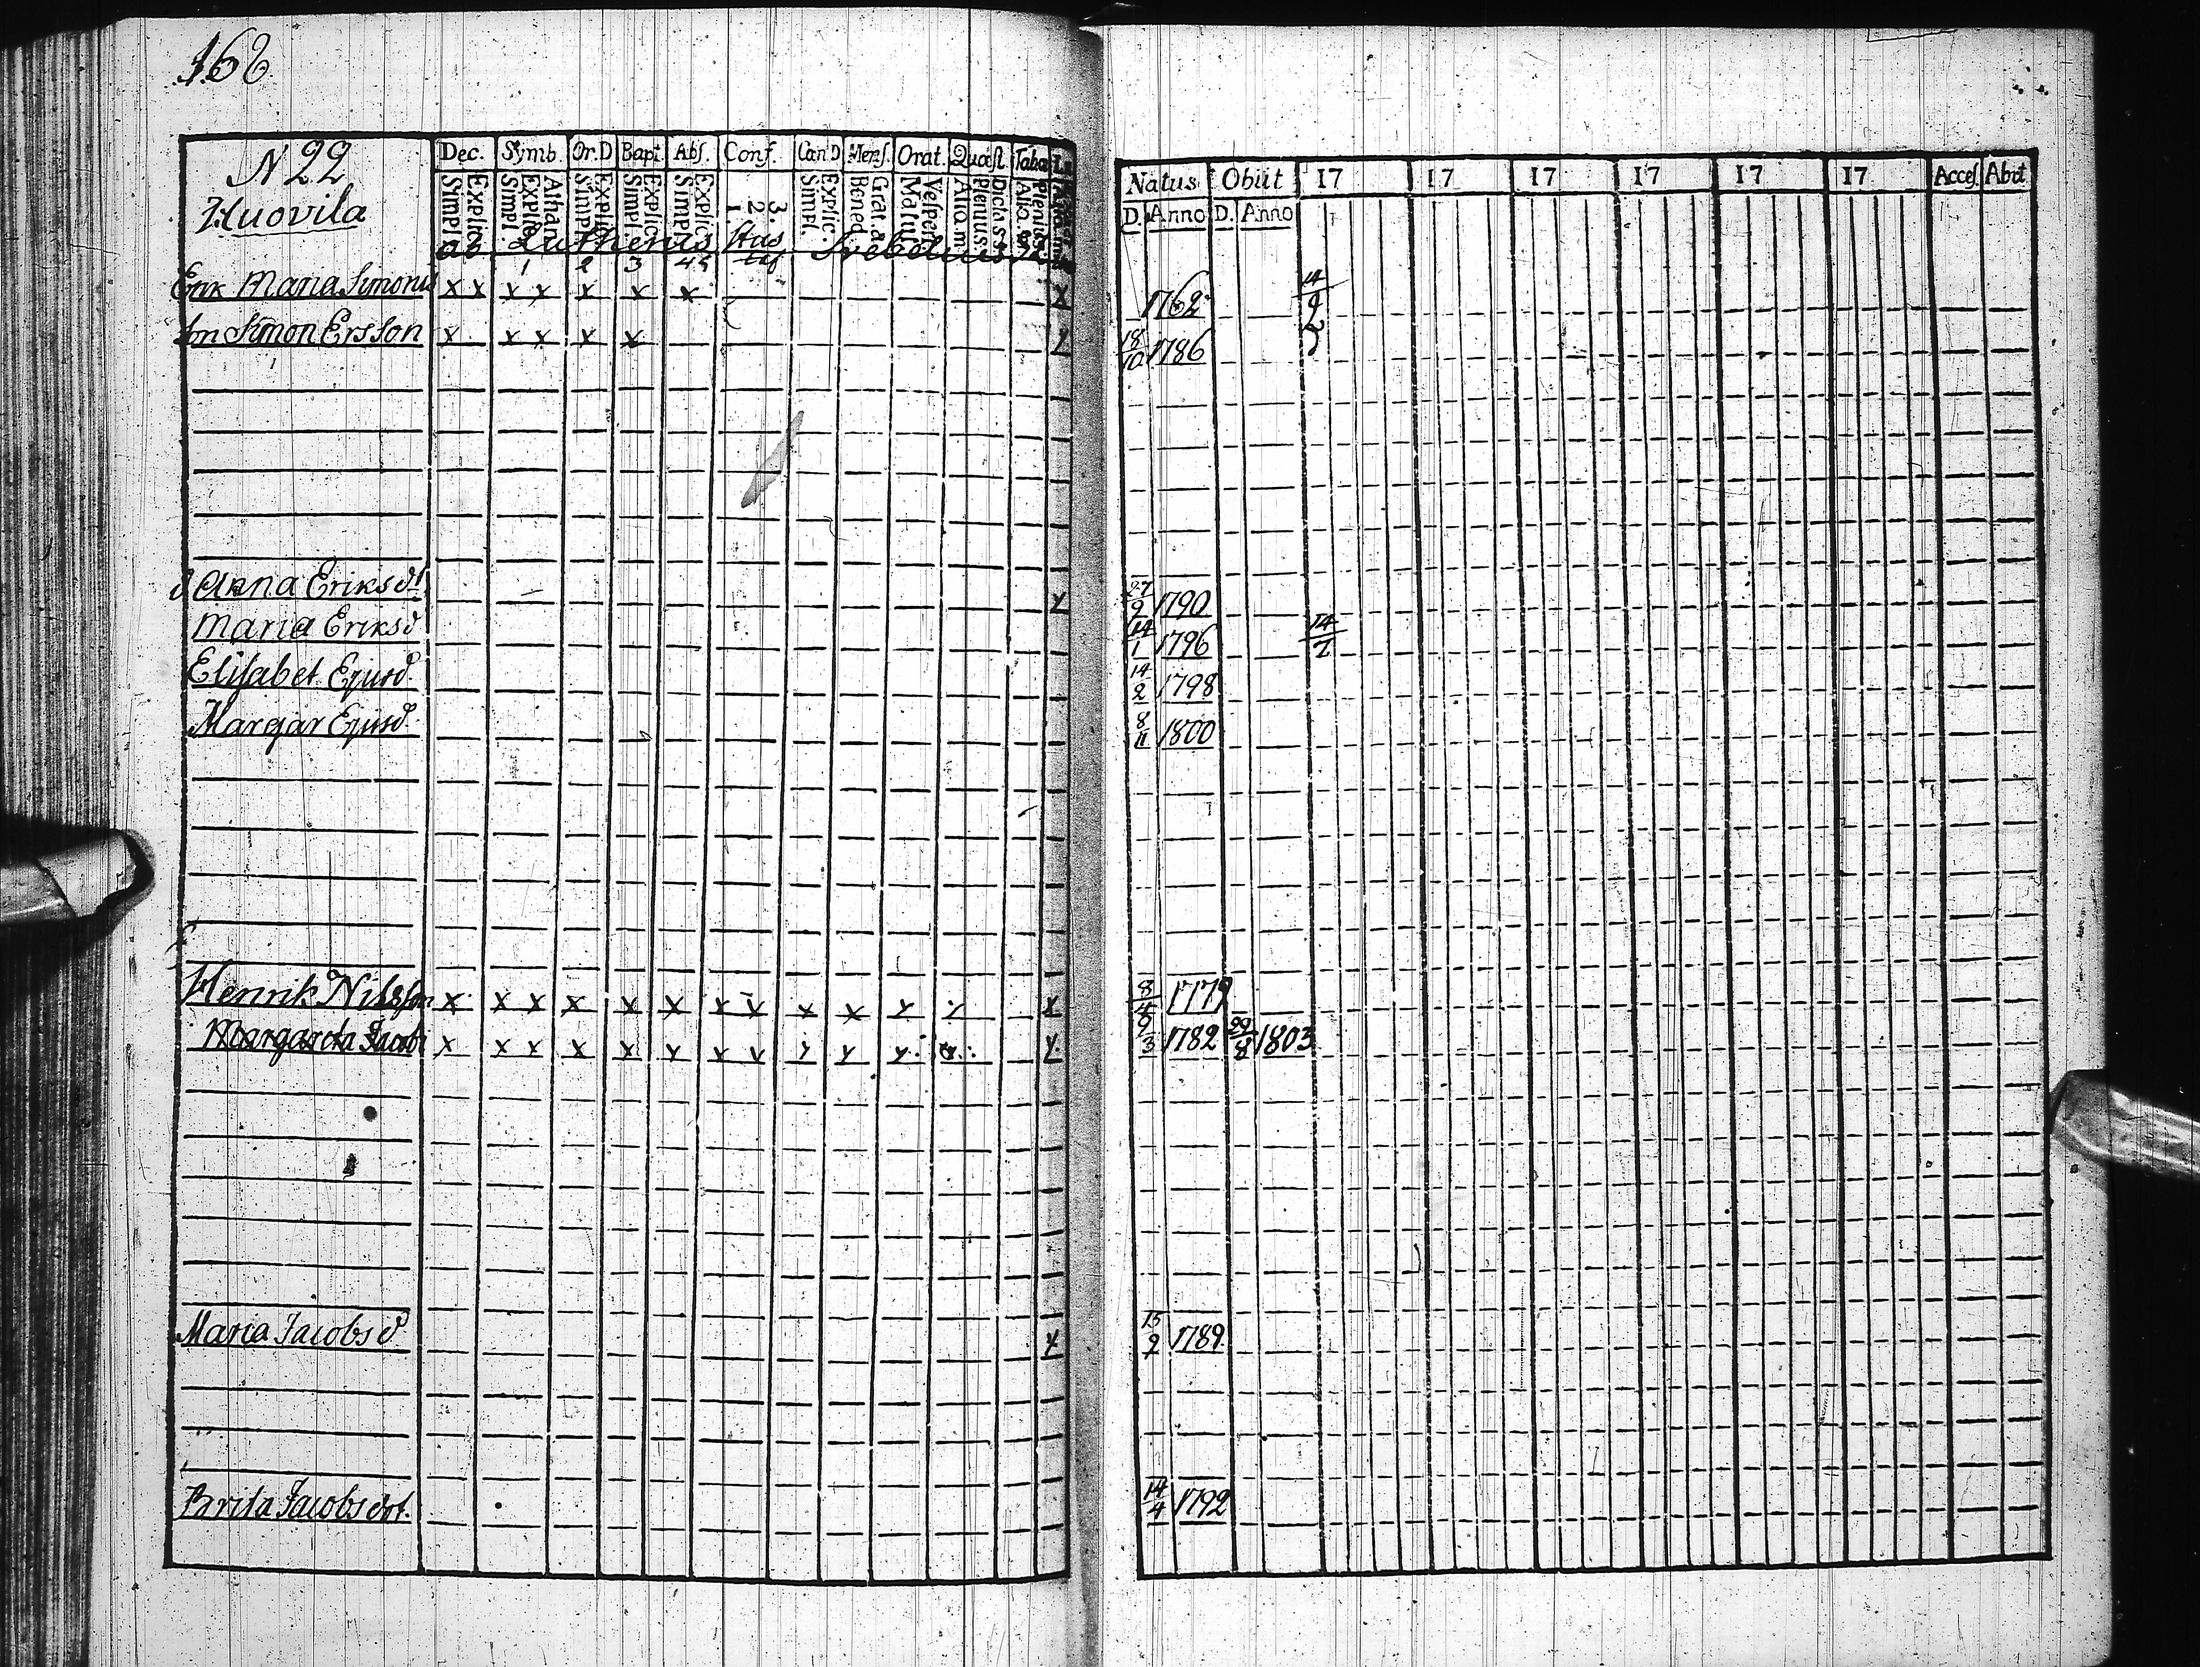 168
N 22
Huovila
Dec. Symb. Or.D Bapt. Abs. Conf. Can D Mens. Orat. Quæst. Taba
Simpl. Explic. Simpl. Explic. Athan. Simpl. Explic. Simpl. Explic. Simpl. Explic. 1. 2. 3. Simpl. Explic. Bened. Grat. a Matut. Vespert. Alio. m. Plenius. Dicta S. S. Alio. m. Plenius.
ab Lutherus Hus Svebelius
1 2 3 4 5
Erik Maria Simonis x x x x x x x x
Son Simon Ersson x x x x x x
d Anna Eriksdr x
Maria Eriksd
Elisabet Ejusd.
Margar Ejusd.
Henrik Nilsson x x x x x x x x x x x x x
Margareta Jacobi x x x x x x x x x x x x
Maria Jacobsd x
Brita Jacobs dot.
Natus Obiit 17 17 17 17 17 17 Acces. Abit
D. Anno D. Anno
1762 14/9
18/10 1786
27/9 1790
14/1 1796 14/7
14/2 1798
8/11 1800
8/4 1779
9/3 1782 29/8 1803
15/9 1789
14/4 1792